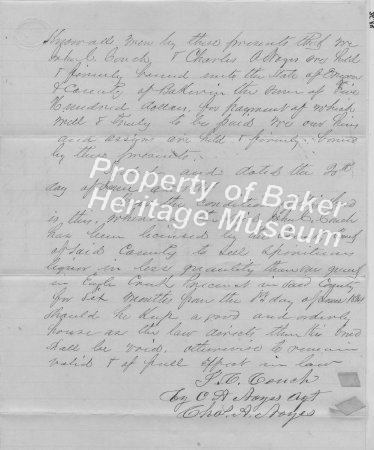 Know all men by these presents that we
John C. Couch & Charles A Noyes are held
& firmly bound unto the State of Oregon
& County of Baker in the sum of Five
Hundred dollars, for payment of which
well & truly to be paid we our heirs
and assigns are held & firmly bound
by these presents.
and dated the 20th
day of June
Property of Baker
Heritage Museum
the Condition
is this, Couch
has been licensed by
of Said County to Sell Spirituous
liquor in less quantity than one quart
in Eagle Creek Precinct in Said County
for Six Months from the day of June 1864
Should he keep a good and orderly
house as the law directs then this Bond
shall be void, otherwise to remain
valid & of full effect in law
J. C. Couch
by C A Noyes Agt
Chas. A. Noyes